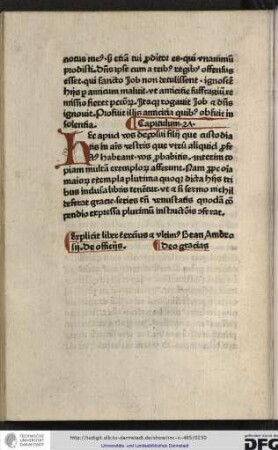 notus meꝰ · sꝫ etiā tui ꝓditor es · qui vnanimū
prodisti. Dūs ipse cum a tribꝰ regibꝰ offensus
esset · qui sancto Job non detulissent · ignoscē
hijs ꝑ amicum maluit · vt amicicie suffragiū re
missio fieret pctōꝝ. Itaqꝫ rogauit Job et dūs
ignouit. Profuit illis amicicia quibꝰ obfuit in
solentia. Capitulum · 24 ·
Hec apud vos deposui filij que custodia
tis in aīs vestris que vtrū aliquid ꝓfe
habeant · vos ꝓbabitis · interim co
piam multā exemploꝝ afferunt. Nam ꝓpe oīa
maioꝝ exempla plurima quoqꝫ dicta hijs tri
bus
libris tenent · vt et si sermo nichil
deferat gracie · series tn̄ vetustatis quodā cō
pendio expressa plurimū instructōis oferat.
Explicit liber tercius et vltimꝰ Beati Ambro
sij · de officijs. Deo gracias
http://tudigit.ulb.tu-darmstadt.de/show/inc-ii-465/0230
Universitäts- und Landesbibliothek Darmstadt
DFG